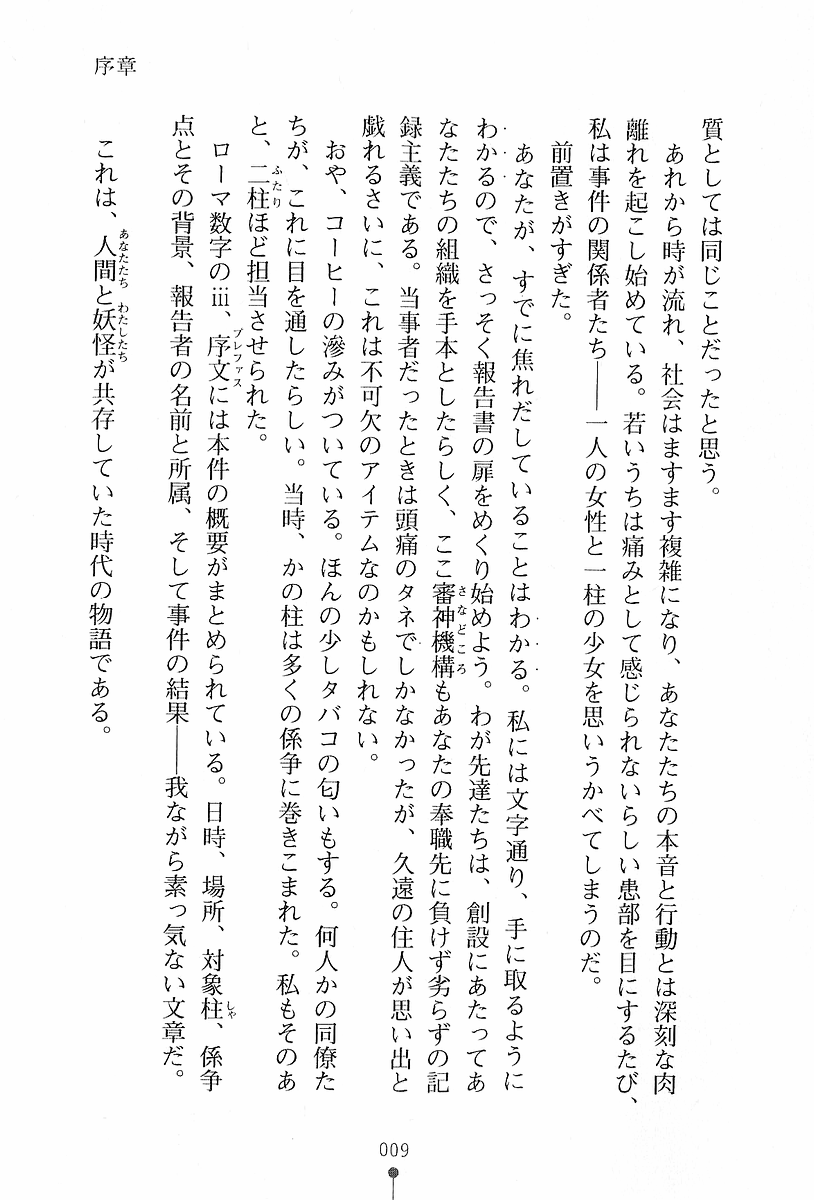 序章
質としては同じことだったと思う。
あれから時が流れ、社会はますます複雑になり、あなたたちの本音と行動とは深刻な肉
離れを起こし始めている。若いうちは痛みとして感じられないらしい患部を目にするたび、
私は事件の関係者たち――一人の女性と一柱の少女を思いうかべてしまうのだ。
前置きがすぎた。
あなたが、すでに焦れだしていることはわかる。私には文字通り、手に取るように
わかるので、さっそく報告書の扉をめくり始めよう。わが先達たちは、創設にあたってあ
なたたちの組織を手本としたらしく、ここ審神機構もあなたの奉職先に負けず劣らずの記
さなどころ
録主義である。当事者だったときは頭痛のタネでしかなかったが、久遠の住人が思い出と
戯れるさいに、これは不可欠のアイテムなのかもしれない。
おや、コーヒーの滲みがついている。ほんの少しタバコの匂いもする。何人かの同僚た
ちが、これに目を通したらしい。当時、かの柱は多くの係争に巻きこまれた。私もそのあ
と、二柱ほど担当させられた。
ふたり
ローマ数字のⅲ、序文には本件の概要がまとめられている。日時、場所、対象柱、係争
プレファス
しゃ
点とその背景、報告者の名前と所属、そして事件の結果――我ながら素っ気ない文章だ。
これは、人間と妖怪が共存していた時代の物語である。
あなたたち
わたしたち
009